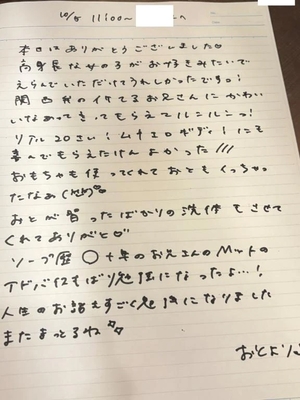 10/5 11:00〜 へ
本日はありがとうございました♡
高身長な女の子がお好きみたいで
えらんでいただけてうれしかったです。!
関西弁のイケてるお兄さんにかわい
いなあってきてもらえてルンルンっ!
リアル20さい!ムチエロボディー!にも
喜んでもらえたけんよかった///
おもちゃも使ってくれておともくっちゃっ
たなあ
おとが習ったばかりの洗体もさせて
くれてありがと♡
ソープ歴◯十年のお兄さんのMットの
アドバイスもばり勉強になったよ…!
人生のお話もすごく勉強になりました
またまっとるね
おとより